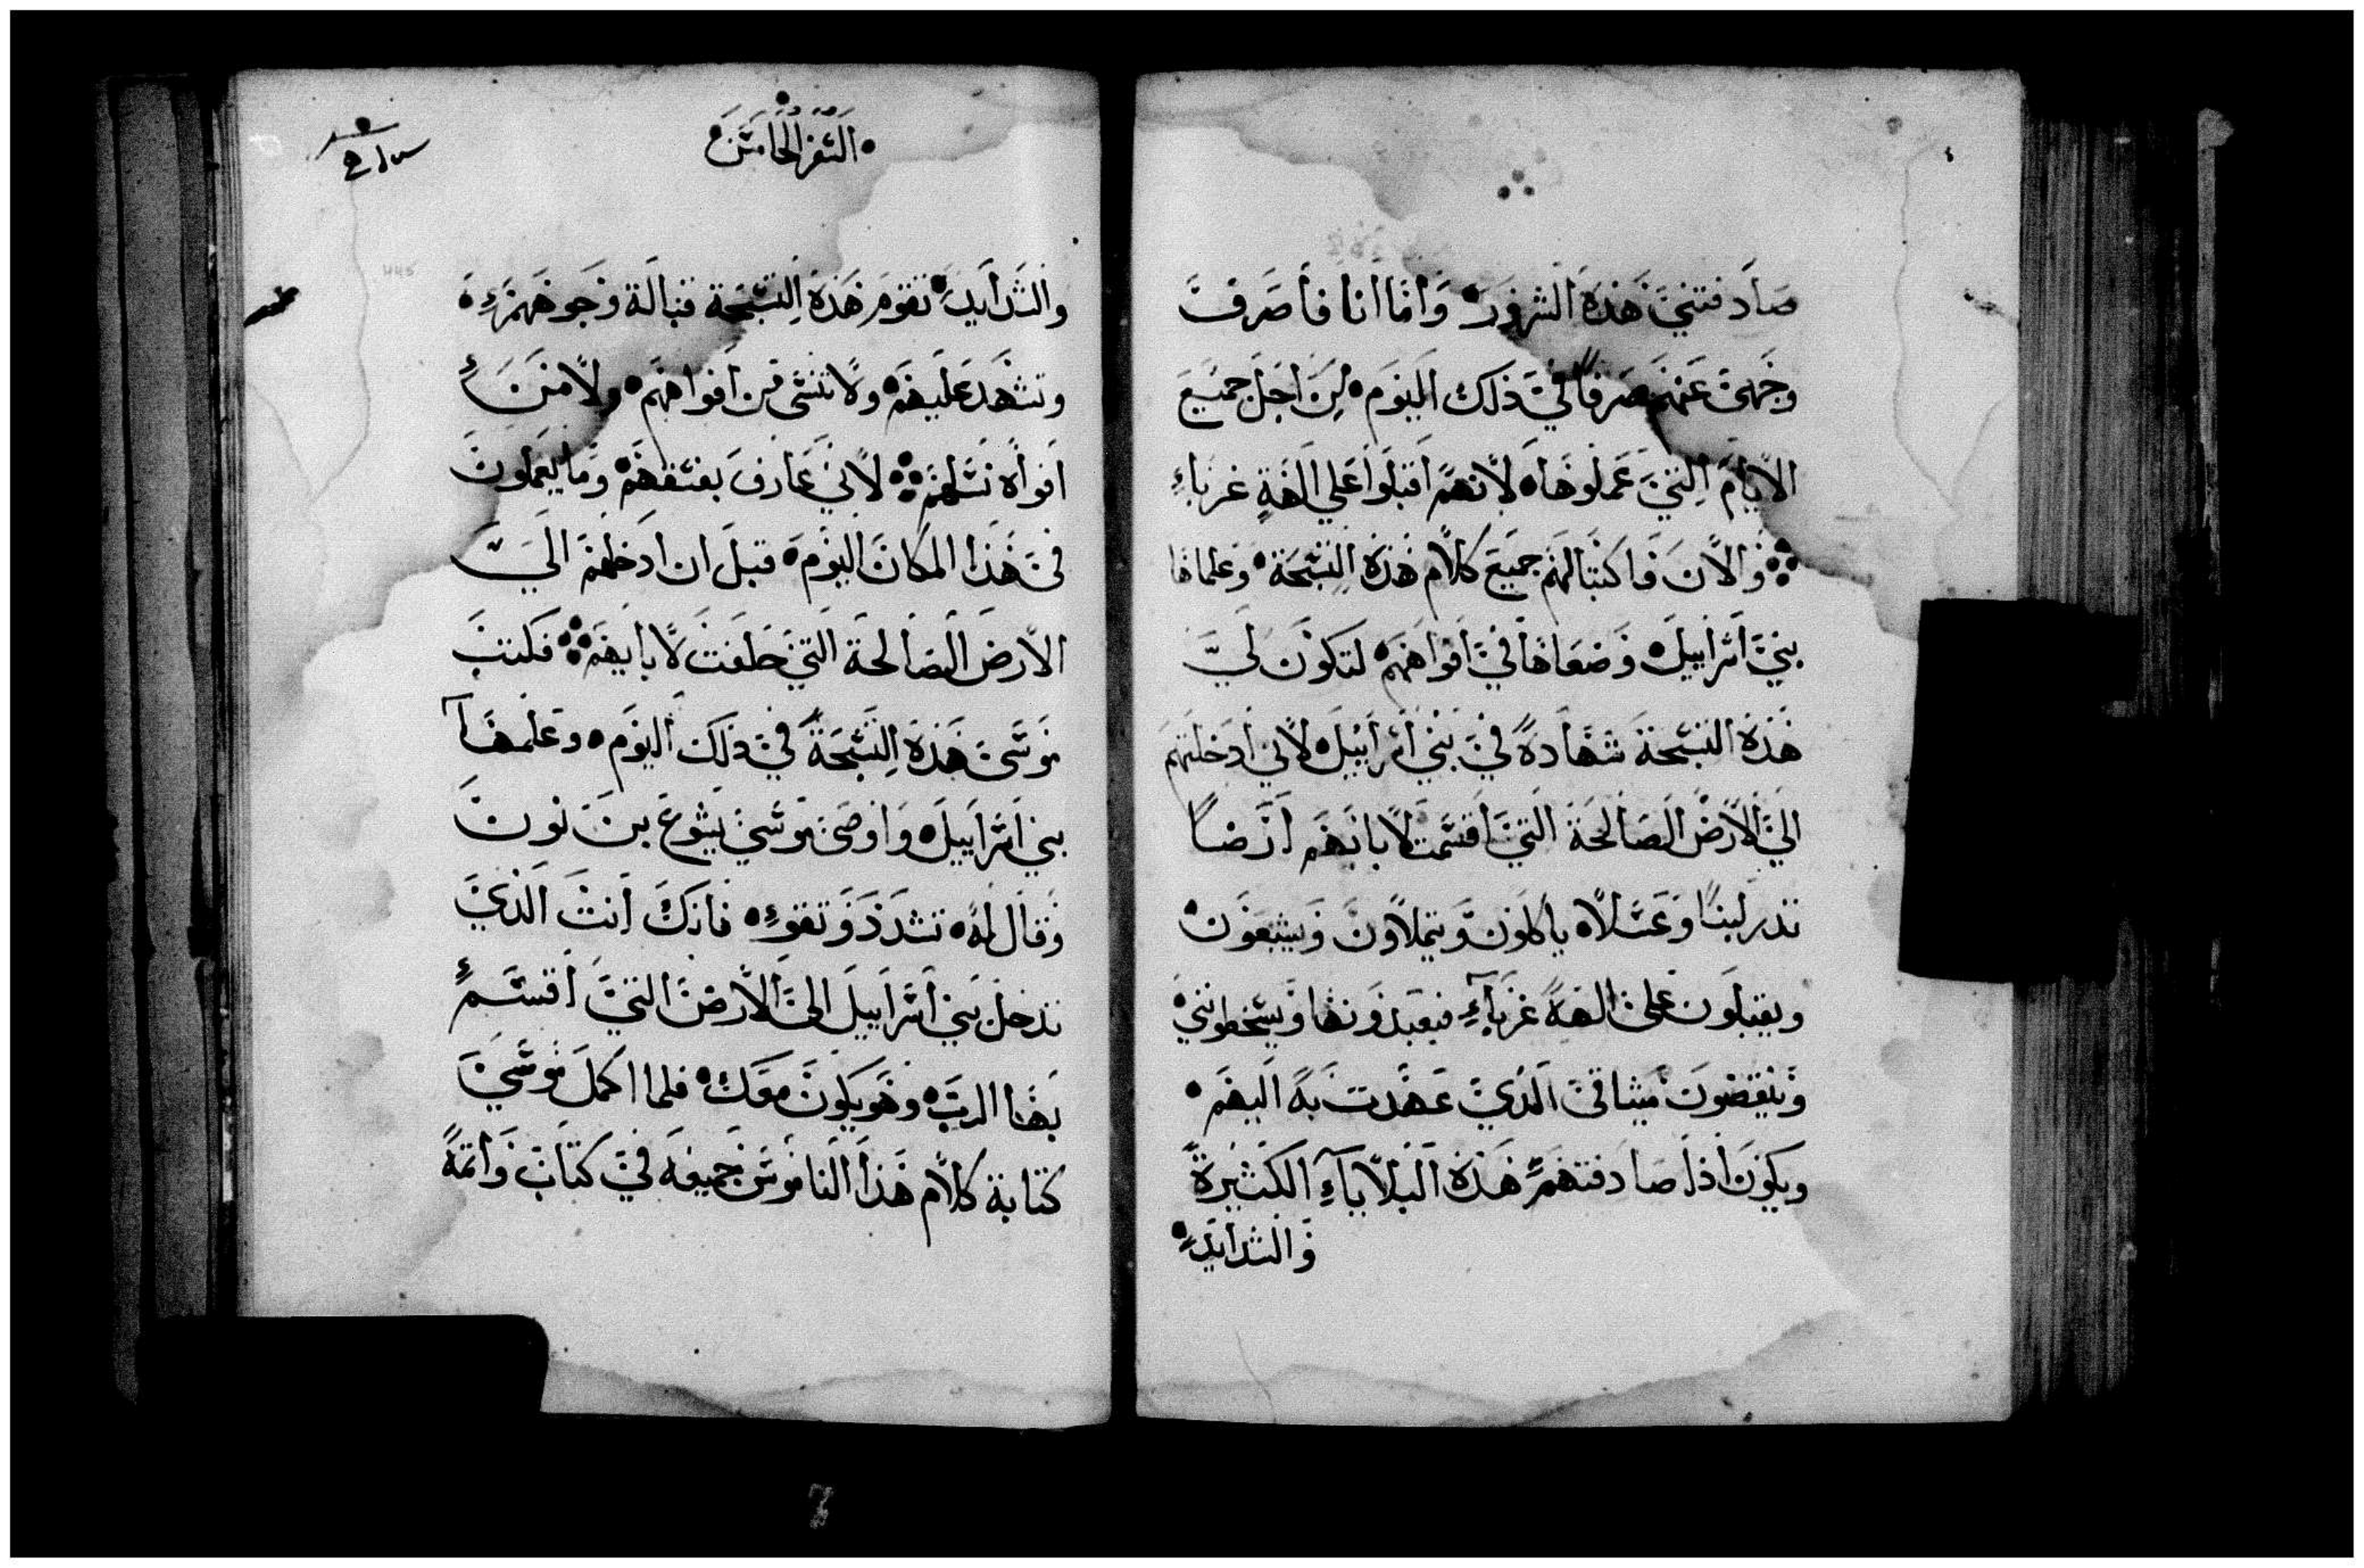 صادفتني هذه الشرور واما انا فاصرف
وجهي عنهم صرفًا في ذلك اليوم لمن اجل جميع
الايام التي عملوها لانهم اقبلوا على الهة غرباء
والان فاكتبا لهم جميع كلام هذه التسبحة وعلماها
بني اسراييل وضعاها في افواههم لتكون لي
هذه التسبحة شهادة في بني اسراييل لاني ادخلتهم
الي الارض الصالحة التي اقسمت لابايهم ارضًا
تدر لبنًا وعسلا ياكلون ويتملاون ويشبعون
ويقبلون على الهة غرباء فيعبدونها ويسخطونني
وينقضون ميثاقي الذي عهدت به اليهم
ويكون اذا صادفتهم هذه البلاياء الكثيرة
والشدايد
السفر الخامس
والشدايد تقوم هذه التسبحة قبالة وجوههم
وتشهد عليهم ولا تنسى من افواههم ولا من
افواه نسلهم لاني عارف بفسقهم وما يعملون
في هذا المكان اليوم قبل ان ادخلهم الي
الارض الصالحة التي حلفت لابايهم فكتب
موسى هذه التسبحة في ذلك اليوم وعلمها
بني اسراييل واوصى موسي يشوع بن نون
وقال له تشدد وتقوء فانك انت الذي
تدخل بني اسراييل الى الارض التي اقسم
بها الرب وهو يكون معك فلما اكمل موسي
كتابة كلام هذا الناموس جميعه في كتاب واتمه
7